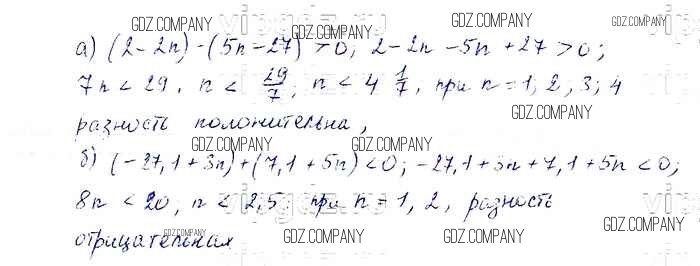 а) (2-2n)-(5n-27) >0; 2-2n-5n+27 >0;
7n < 29. n < 29/7; n < 4 1/7, при n = 1; 2; 3; 4
разность положительна,
б) (-27,1+3n)+(7,1+5n)<0; -27,1+3n+7,1+5n<0;
8n < 20; n < 2,5; при n = 1, 2, разность
отрицательная
GDZ.COMPANY
GDZ.COMPANY
GDZ.COMPANY
GDZ.COMPANY
GDZ.COMPANY
GDZ.COMPANY
GDZ.COMPANY
GDZ.COMPANY
GDZ.COMPANY
GDZ.COMPANY
GDZ.COMPANY
GDZ.COMPANY
GDZ.COMPANY